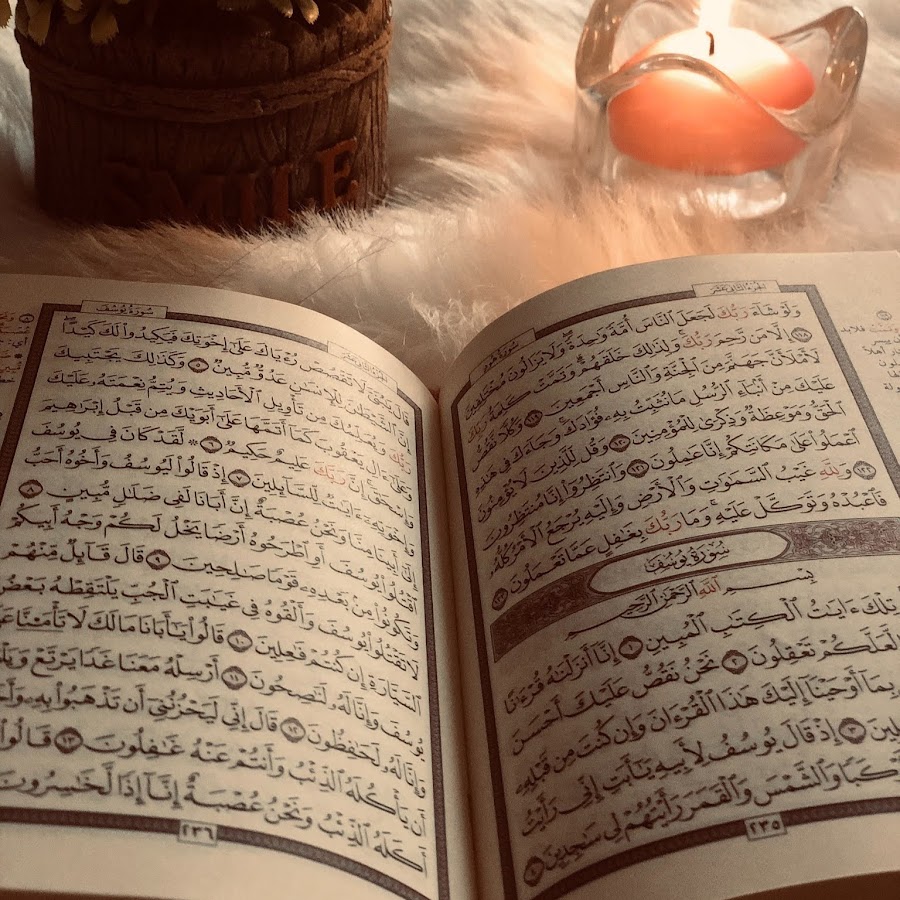 الجزء الثاني عشر
سورة هود
وَلَوْ شَآءَ رَبُّكَ لَجَعَلَ ٱلنَّاسَ أُمَّةً وَٰحِدَةً وَلَا يَزَالُونَ مُخْتَلِفِينَ
١١٨ إِلَّا مَن رَّحِمَ رَبُّكَ وَلِذَٰلِكَ خَلَقَهُمْ وَتَمَّتْ كَلِمَةُ رَبِّكَ
لَأَمْلَأَنَّ جَهَنَّمَ مِنَ ٱلْجِنَّةِ وَٱلنَّاسِ أَجْمَعِينَ ١١٩ وَكُلًّا نَّقُصُّ
عَلَيْكَ مِنْ أَنۢبَآءِ ٱلرُّسُلِ مَا نُثَبِّتُ بِهِۦ فُؤَادَكَ وَجَآءَكَ فِى هَٰذِهِ
ٱلْحَقُّ وَمَوْعِظَةٌ وَذِكْرَىٰ لِلْمُؤْمِنِينَ ١٢٠ وَقُل لِّلَّذِينَ لَا يُؤْمِنُونَ
ٱعْمَلُوا۟ عَلَىٰ مَكَانَتِكُمْ إِنَّا عَٰمِلُونَ ١٢١ وَٱنتَظِرُوٓا۟ إِنَّا مُنتَظِرُونَ
١٢٢ وَلِلَّهِ غَيْبُ ٱلسَّمَٰوَٰتِ وَٱلْأَرْضِ وَإِلَيْهِ يُرْجَعُ ٱلْأَمْرُ كُلُّهُۥ
فَٱعْبُدْهُ وَتَوَكَّلْ عَلَيْهِ وَمَا رَبُّكَ بِغَٰفِلٍ عَمَّا تَعْمَلُونَ ١٢٣
سُورَةُ يُوسُفَ
بِسْمِ ٱللَّهِ ٱلرَّحْمَٰنِ ٱلرَّحِيمِ
تِلْكَ ءَايَٰتُ ٱلْكِتَٰبِ ٱلْمُبِينِ ١ إِنَّآ أَنزَلْنَٰهُ قُرْءَٰنًا
لَّعَلَّكُمْ تَعْقِلُونَ ٢ نَحْنُ نَقُصُّ عَلَيْكَ أَحْسَنَ
بِمَآ أَوْحَيْنَآ إِلَيْكَ هَٰذَا ٱلْقُرْءَانَ وَإِن كُنتَ مِن قَبْلِهِۦ
لِينَ ٣ إِذْ قَالَ يُوسُفُ لِأَبِيهِ يَٰٓأَبَتِ إِنِّى رَأَيْتُ
كَبًا وَٱلشَّمْسَ وَٱلْقَمَرَ رَأَيْتُهُمْ لِى سَٰجِدِينَ ٤
٢٣٥
الجزء الثاني عشر
سورة يوسف
قَالَ يَٰبُنَىَّ لَا تَقْصُصْ رُءْيَاكَ عَلَىٰٓ إِخْوَتِكَ فَيَكِيدُوا۟ لَكَ كَيْدًا
إِنَّ ٱلشَّيْطَٰنَ لِلْإِنسَٰنِ عَدُوٌّ مُّبِينٌ ٥ وَكَذَٰلِكَ يَجْتَبِيكَ
رَبُّكَ وَيُعَلِّمُكَ مِن تَأْوِيلِ ٱلْأَحَادِيثِ وَيُتِمُّ نِعْمَتَهُۥ عَلَيْكَ
وَعَلَىٰٓ ءَالِ يَعْقُوبَ كَمَآ أَتَمَّهَا عَلَىٰٓ أَبَوَيْكَ مِن قَبْلُ إِبْرَٰهِيمَ
وَإِسْحَٰقَ إِنَّ رَبَّكَ عَلِيمٌ حَكِيمٌ ٦ ۞ لَّقَدْ كَانَ فِى يُوسُفَ
وَإِخْوَتِهِۦٓ ءَايَٰتٌ لِّلسَّآئِلِينَ ٧ إِذْ قَالُوا۟ لَيُوسُفُ وَأَخُوهُ أَحَبُّ
إِلَىٰٓ أَبِينَا مِنَّا وَنَحْنُ عُصْبَةٌ إِنَّ أَبَانَا لَفِى ضَلَٰلٍ مُّبِينٍ ٨
ٱقْتُلُوا۟ يُوسُفَ أَوِ ٱطْرَحُوهُ أَرْضًا يَخْلُ لَكُمْ وَجْهُ أَبِيكُمْ
وَتَكُونُوا۟ مِنۢ بَعْدِهِۦ قَوْمًا صَٰلِحِينَ ٩ قَالَ قَآئِلٌ مِّنْهُمْ
لَا تَقْتُلُوا۟ يُوسُفَ وَأَلْقُوهُ فِى غَيَٰبَتِ ٱلْجُبِّ يَلْتَقِطْهُ بَعْضُ
ٱلسَّيَّارَةِ إِن كُنتُمْ فَٰعِلِينَ ١٠ قَالُوا۟ يَٰٓأَبَانَا مَا لَكَ لَا تَأْمَ۫نَّا
يُوسُفَ وَإِنَّا لَهُۥ لَنَٰصِحُونَ ١١ أَرْسِلْهُ مَعَنَا غَدًا يَرْتَعْ
وَإِنَّا لَهُۥ لَحَٰفِظُونَ ١٢ قَالَ إِنِّى لَيَحْزُنُنِىٓ أَن تَذْهَبُوا۟ بِهِۦ
أَن يَأْكُلَهُ ٱلذِّئْبُ وَأَنتُمْ عَنْهُ غَٰفِلُونَ ١٣ قَالُوا۟
أَكَلَهُ ٱلذِّئْبُ وَنَحْنُ عُصْبَةٌ إِنَّآ إِذًا لَّخَٰسِرُونَ
٢٣٦
SMILE